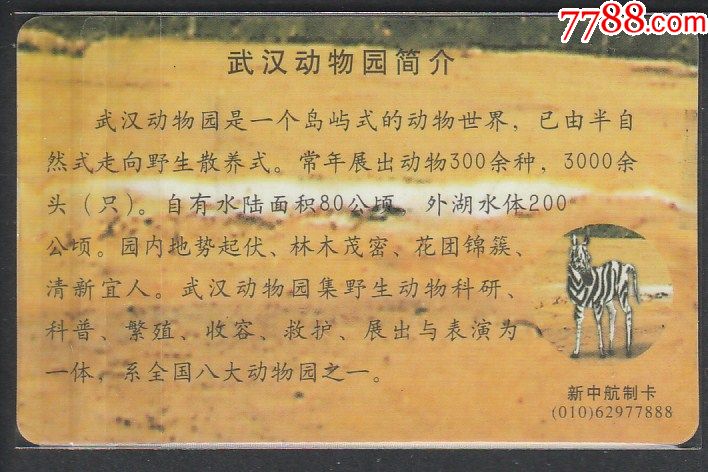 7788.com
武汉动物园简介
武汉动物园是一个岛屿式的动物世界，已由半自
然式走向野生散养式。常年展出动物300余种，3000余
头（只）。自有水陆面积80公顷　外湖水体200
公顷。园内地势起伏、林木茂密、花团锦簇、
清新宜人。武汉动物园集野生动物科研、
科普、繁殖、收容、救护、展出与表演为
一体，系全国八大动物园之一。
新中航制卡
(010)62977888